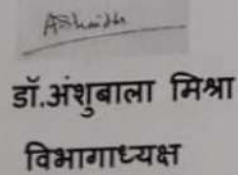 डॉ.अंशुबाला मिश्रा
विभागाध्यक्ष